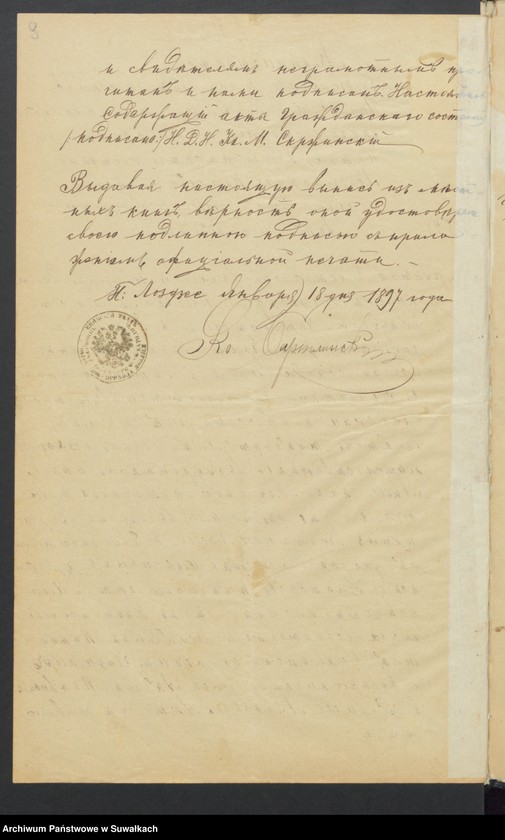 9
и свидетелямъ неграмотнымъ про
читанъ и нами подписанъ. Настоя
Содержащій акты Гражданскаго сост
/подписано:/ Н. Д. Н. Кс. М.
Выдавая настоящую выпись изъ
ныхъ книгъ, верность оной удостове
своею подлинною подписью съ прило
женіемъ официальной печати. —
П. Лоздзее Января 18 дня 1897 года
Кс.
Archiwum Państwowe w Suwałkach